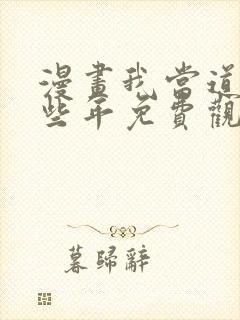 漫畫我當道
些年免費觀
暮歸辭